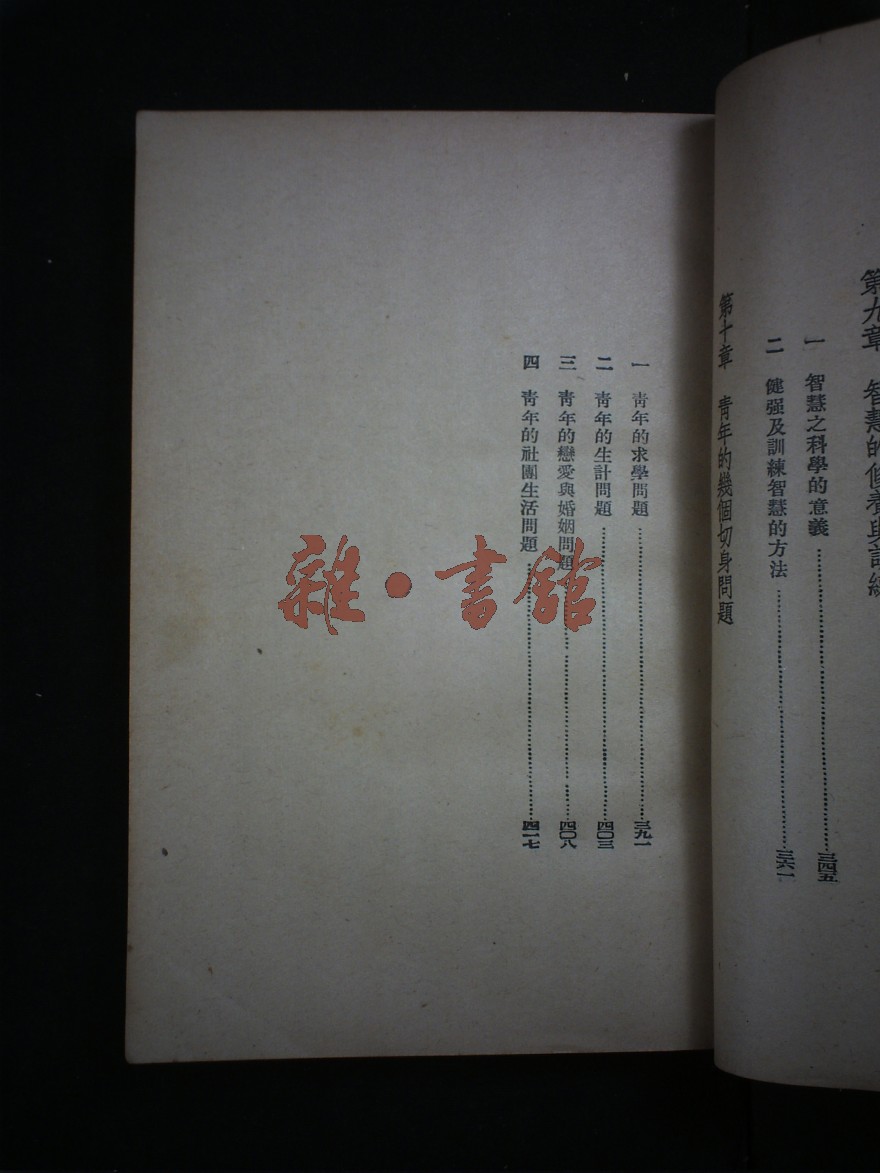 第九章 智慧的修養與訓練
一 智慧之科學的意義……三四五
二 健强及訓練智慧的方法……三六一
第十章 青年的幾個切身問題
一 青年的求學問題……三九一
二 青年的生計問題……四〇三
三 青年的戀愛與婚姻問題……四〇八
四 青年的社團生活問題……四一七
雜·書館